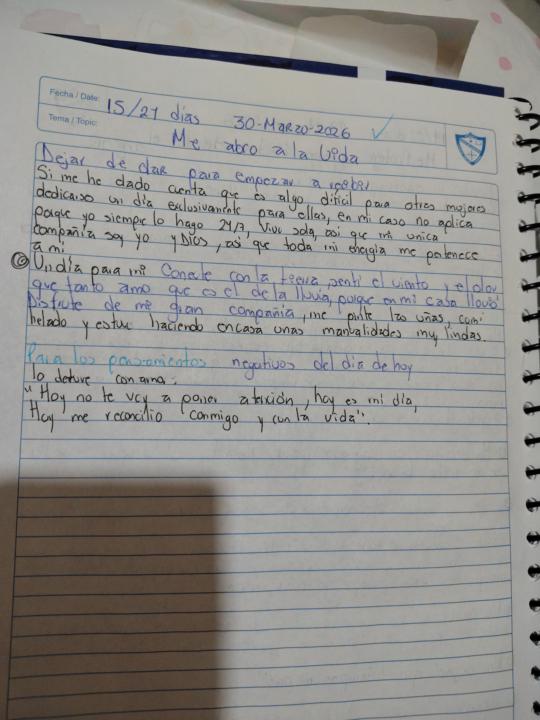 Fecha / Date: 15/21 días 30-Marzo-2026
Tema / Topic: Me abro a la Vida
Dejar de dar para empezar a recibir
Si me he dado cuenta que es algo dificil para otras mujeres
dedicarse un día exclusivamente para ellas, en mi caso no aplica
porque yo siempre lo hago 24/7, Vivo sola, así que mi unica
compañía soy yo y Dios, así que toda mi energía me pertenece
a mi.
Un día para mi Conecte con la tierra, sentí el viento y el olor
que tanto amo que es el de la lluvia, porque en mi casa llovió
Disfrute de mi gran compañía, me pinte las uñas, comí
helado y estuve haciendo en casa unas manualidades muy lindas.
Para los pensamientos negativos del día de hoy
lo detuve con amor:
"Hoy no te voy a poner atención, hoy es mi día,
Hoy me reconcilio conmigo y con la vida".